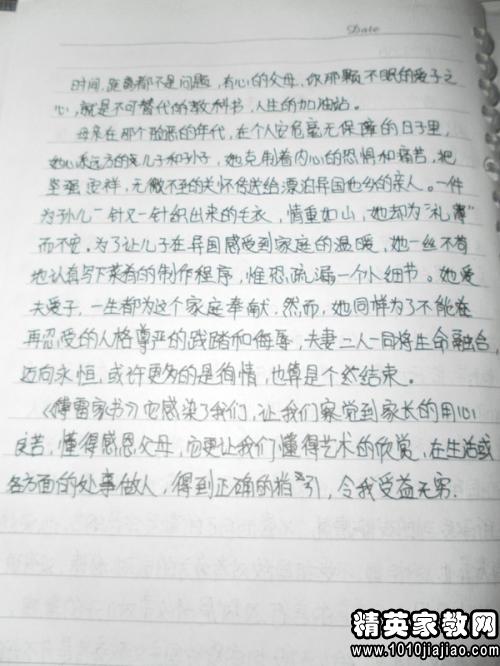 Date
时间，距离都不是问题，有心的父母，你那颗不眠的爱子之
心，就是不可替代的教科书，人生的加油站。
母亲在那个险恶的年代，在个人安危毫无保障的日子里，
她心系远方的儿子和孙子，她克制着内心的恐惧和痛苦，把
坚强 无微不至的关怀传送给漂泊异国他乡的亲人。一件
为孙儿一针又一针织出来的毛衣，情重如山，她却为“礼薄”
而不安。为了让儿子在异国感受到家庭的温暖，她一丝不苟
地认真写下菜肴的制作程序，惟恐疏漏一个小细节。她爱
夫爱子，一生都为这个家庭奉献，然而，她同样为了不能在
再忍受的人格尊严的践踏和侮辱，夫妻二人一同将生命融合，
迈向永恒，或许更多的是殉情，也算是个终结束。
《傅雷家书》也感染了我们，让我们察觉到家长的用心
良苦，懂得感恩父母，它更让我们懂得艺术的欣赏，在生活或
各方面的处事做人，得到正确的指引，令我受益无穷.
精英家教网
www.1010jiajiao.com